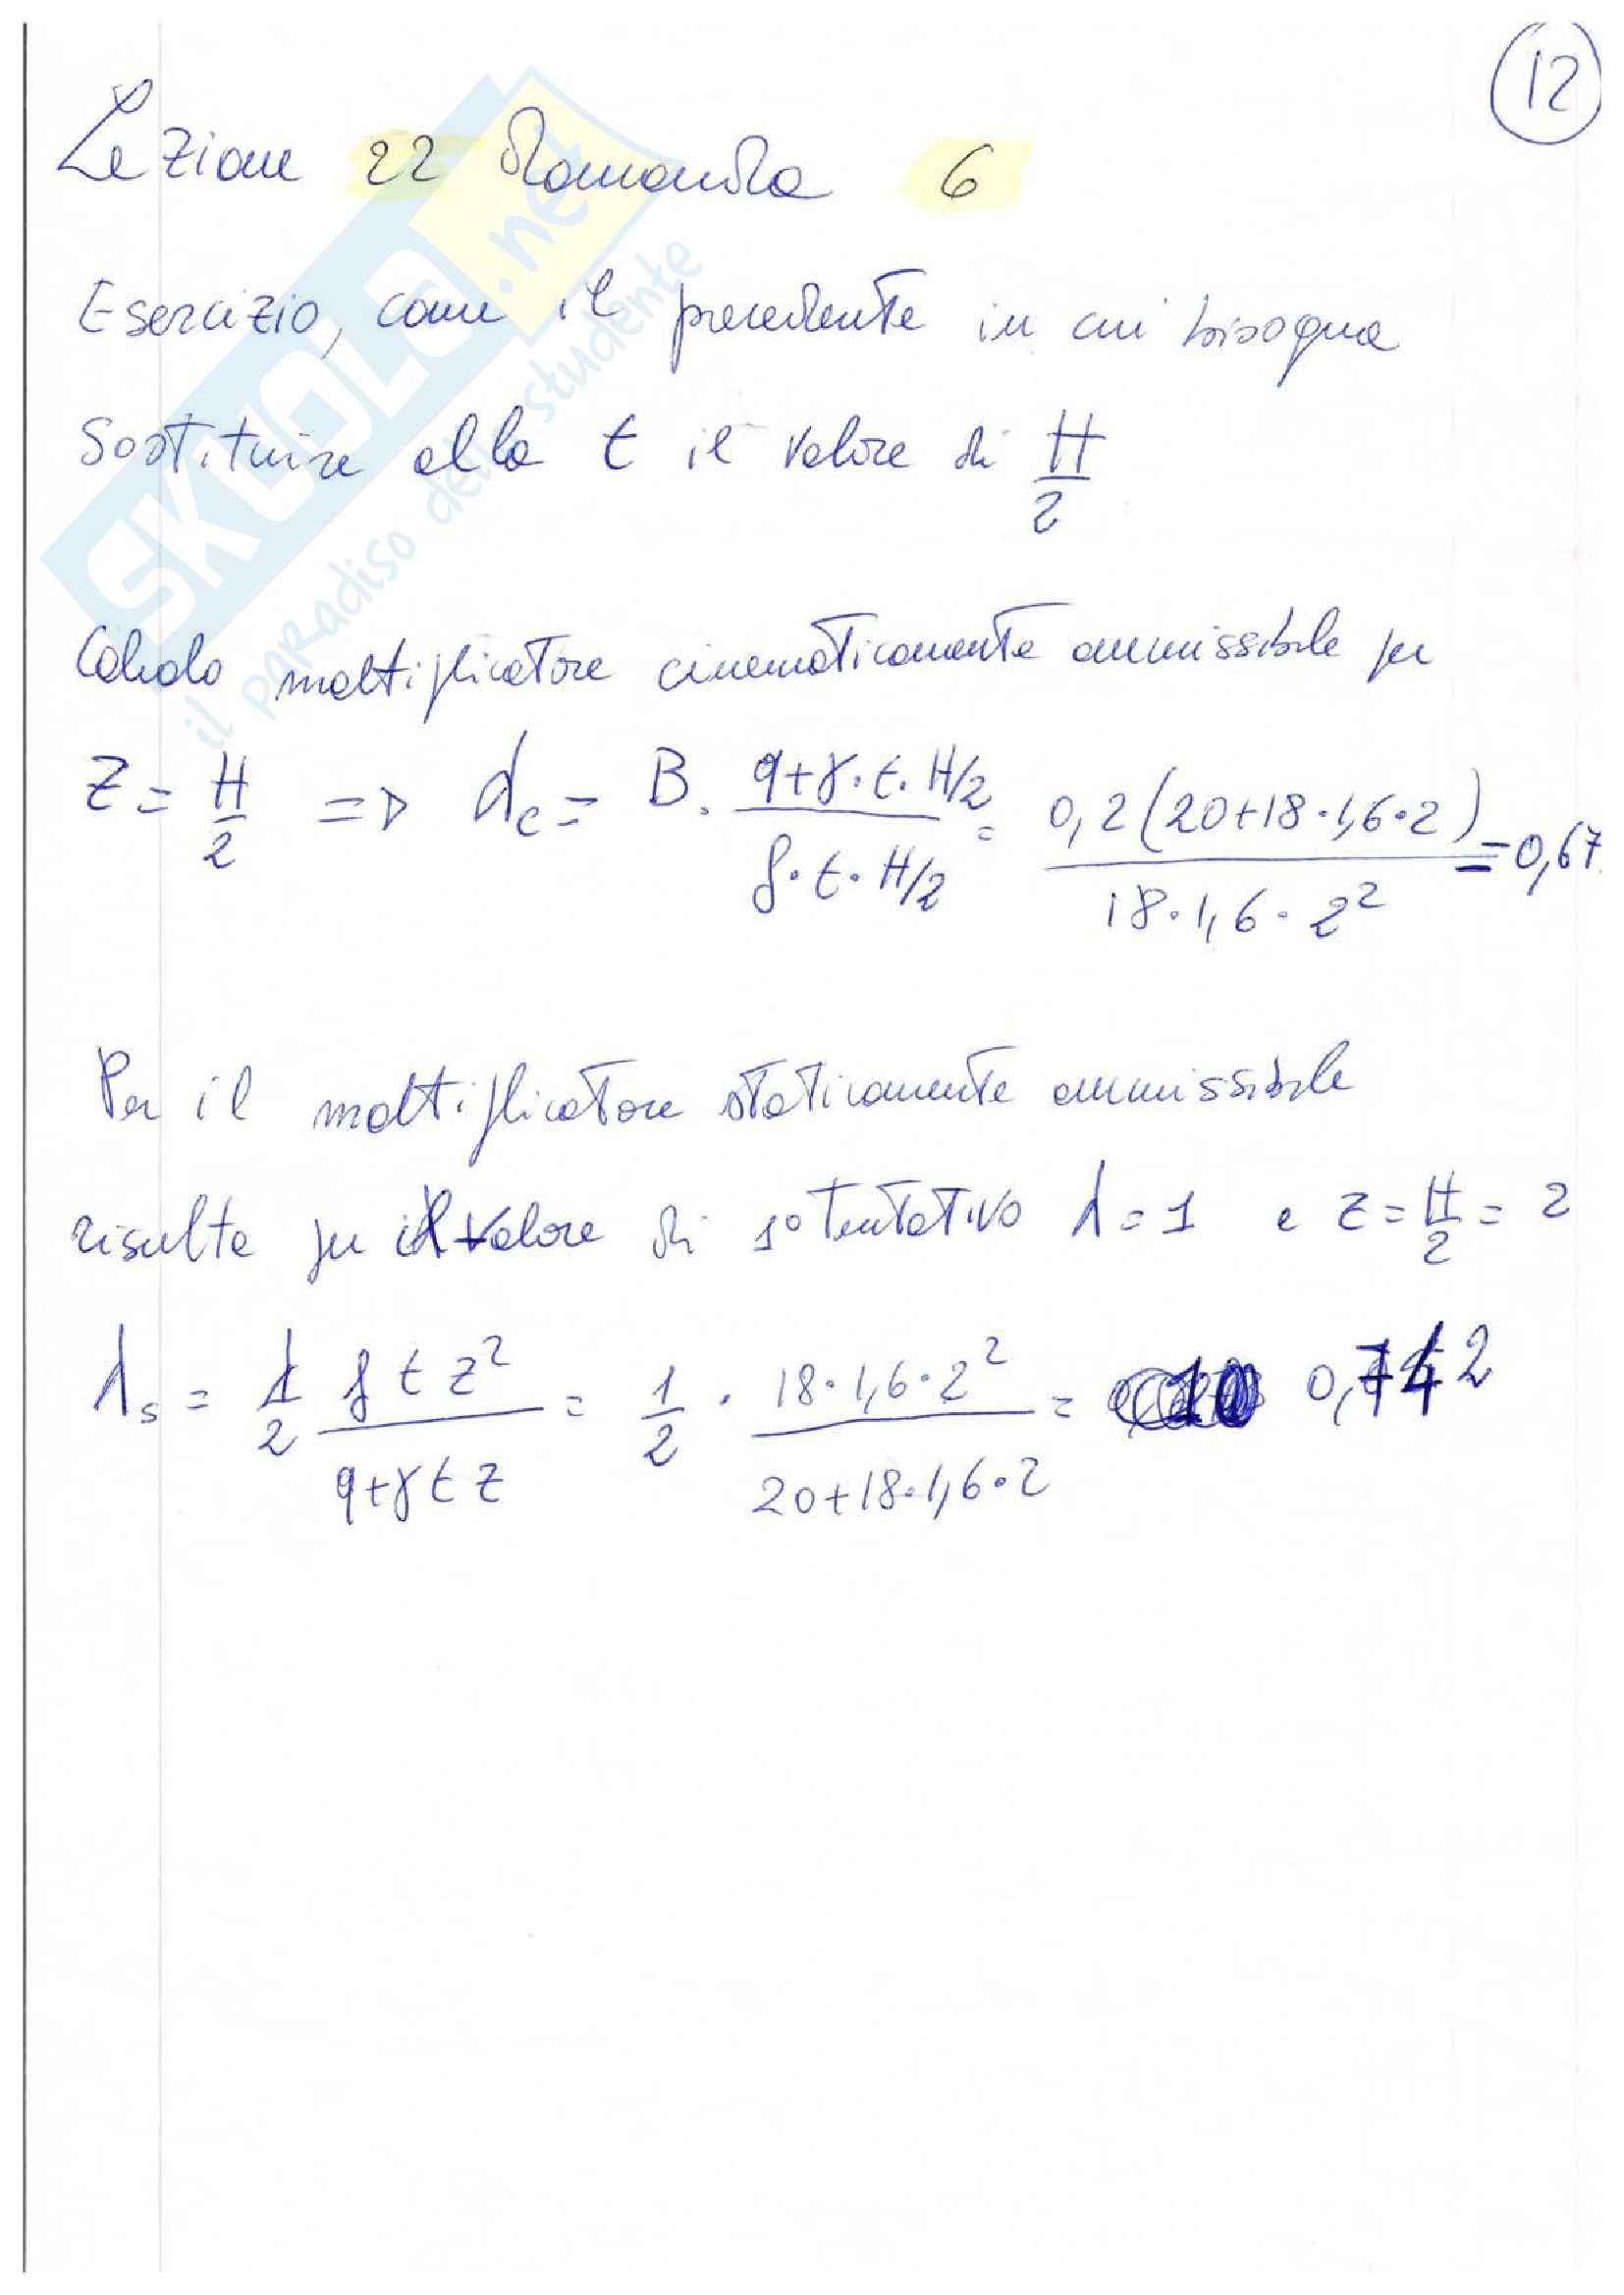 12
Lezione 22 domanda 6
Esercizio, come il precedente in cui bisogna
Sostituire alla t il valore di H/2
Calcolo moltiplicatore cinematicamente ammissibile per
Z = H/2 => λc = B · (q+γ·t·H/2)/(γ·t·H/2) = 0,2(20+18·1,6·2)/(18·1,6·2²) = 0,67
Per il moltiplicatore staticamente ammissibile
risulta per il valore di 1° tentativo λ = 1 e z = H/2 = 2
λs = 1/2 (γ t z²)/(q+γ t z) = 1/2 · (18·1,6·2²)/(20+18·1,6·2) =
SKUOLA.net
il paradiso dello studente